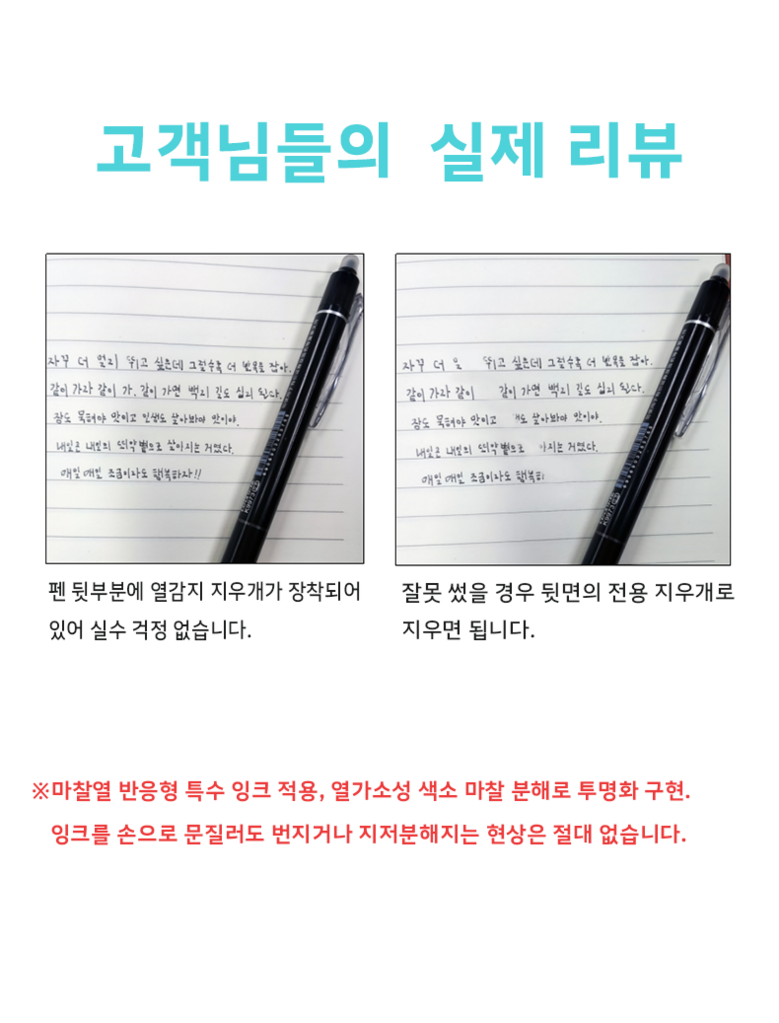 고객님들의 실제 리뷰
자꾸 더 멀리 뛰고 싶은데 그럴수록 더 반복을 잡아.
같이 가자 같이 가. 같이 가면 백리 길도 십리 된다.
장도 묵혀야 맛이고 인생도 살아봐야 맛이야.
내일은 내일의 뙤약볕으로 살아지는 거였다.
매일 매일 조금이라도 행복하자!!
자꾸 더 뛰고 싶은데 그럴수록 더 반복을 잡아.
같이 가자 같이 같이 가면 백리 길도 십리 된다.
장도 묵혀야 맛이고 살아봐야 맛이야.
내일은 내일의 뙤약볕으로 지는 거였다.
매일 매일 조금이라도 행복
펜 뒷부분에 열감지 지우개가 장착되어
있어 실수 걱정 없습니다.
잘못 썼을 경우 뒷면의 전용 지우개로
지우면 됩니다.
※마찰열 반응형 특수 잉크 적용, 열가소성 색소 마찰 분해로 투명화 구현.
잉크를 손으로 문질러도 번지거나 지저분해지는 현상은 절대 없습니다.